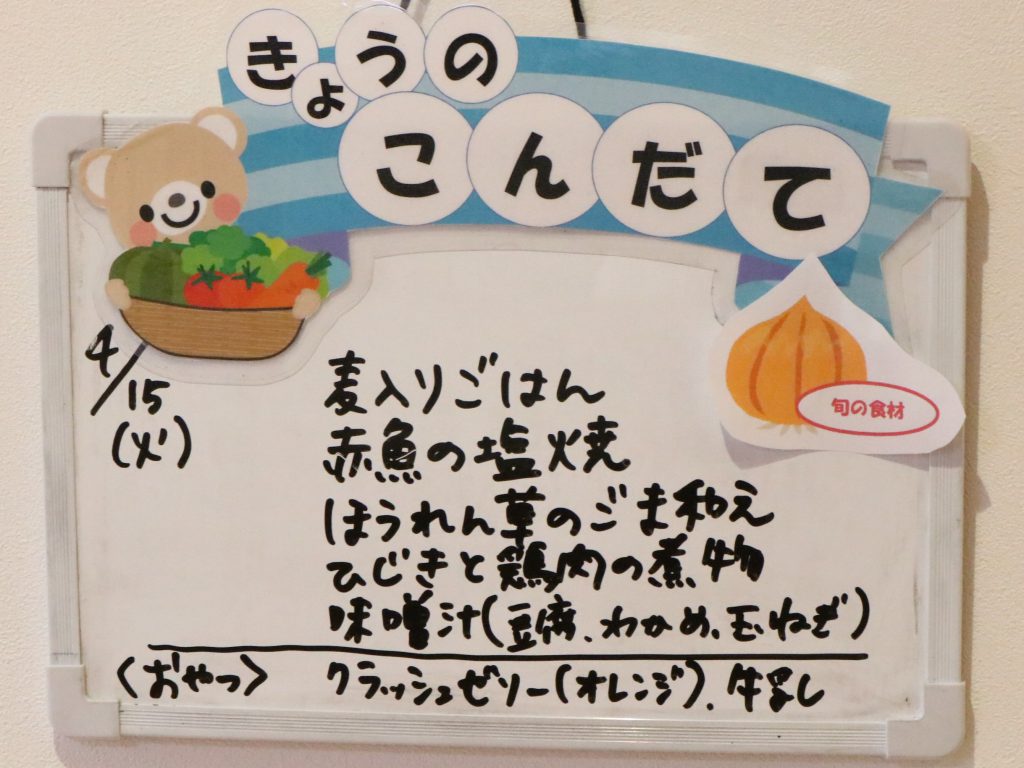 きょうの
こんだて
旬の食材
4/15
(火)
麦入りごはん
赤魚の塩焼
ほうれん草のごま和え
ひじきと鶏肉の煮物
味噌汁(豆腐、わかめ、玉ねぎ)
〈おやつ〉 クラッシュゼリー(オレンジ)、牛乳